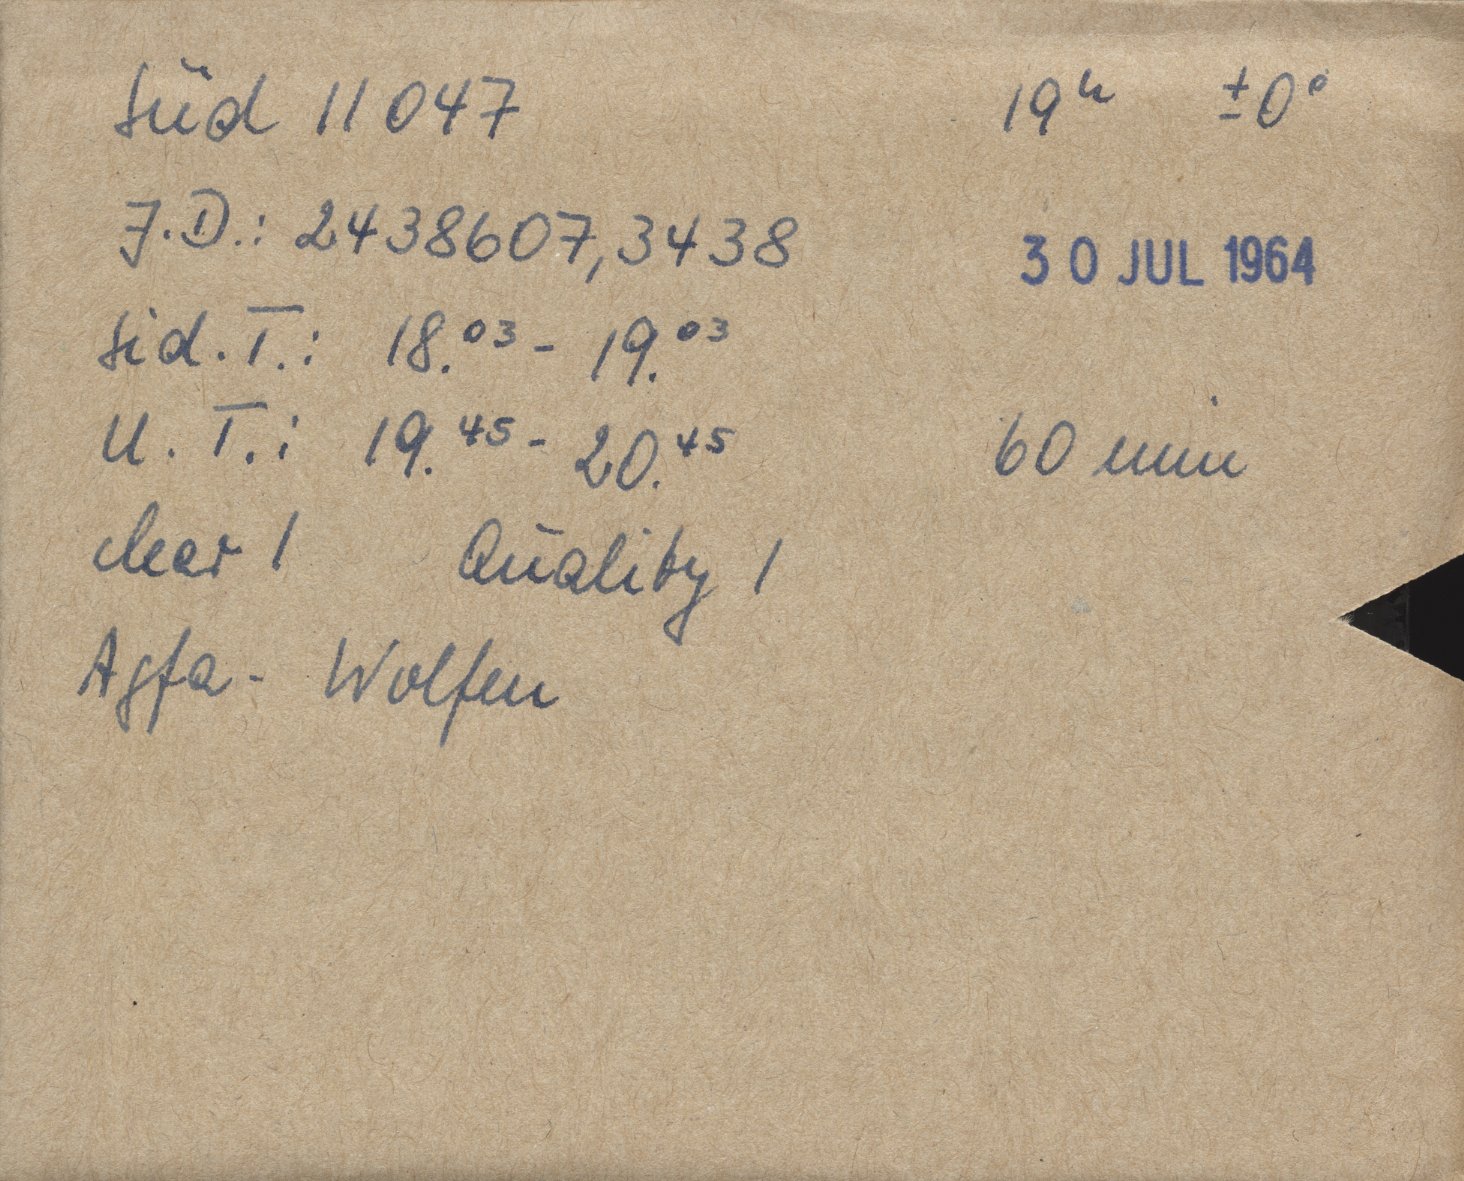 Süd 11047 19ʰ ±0°
J.D.: 2438607,3438 30 JUL 1964
Sid. T.: 18.⁰³ - 19.⁰³
U. T.: 19.⁴⁵ - 20.⁴⁵ 60 min
clear 1 Quality 1
Agfa - Wolfen